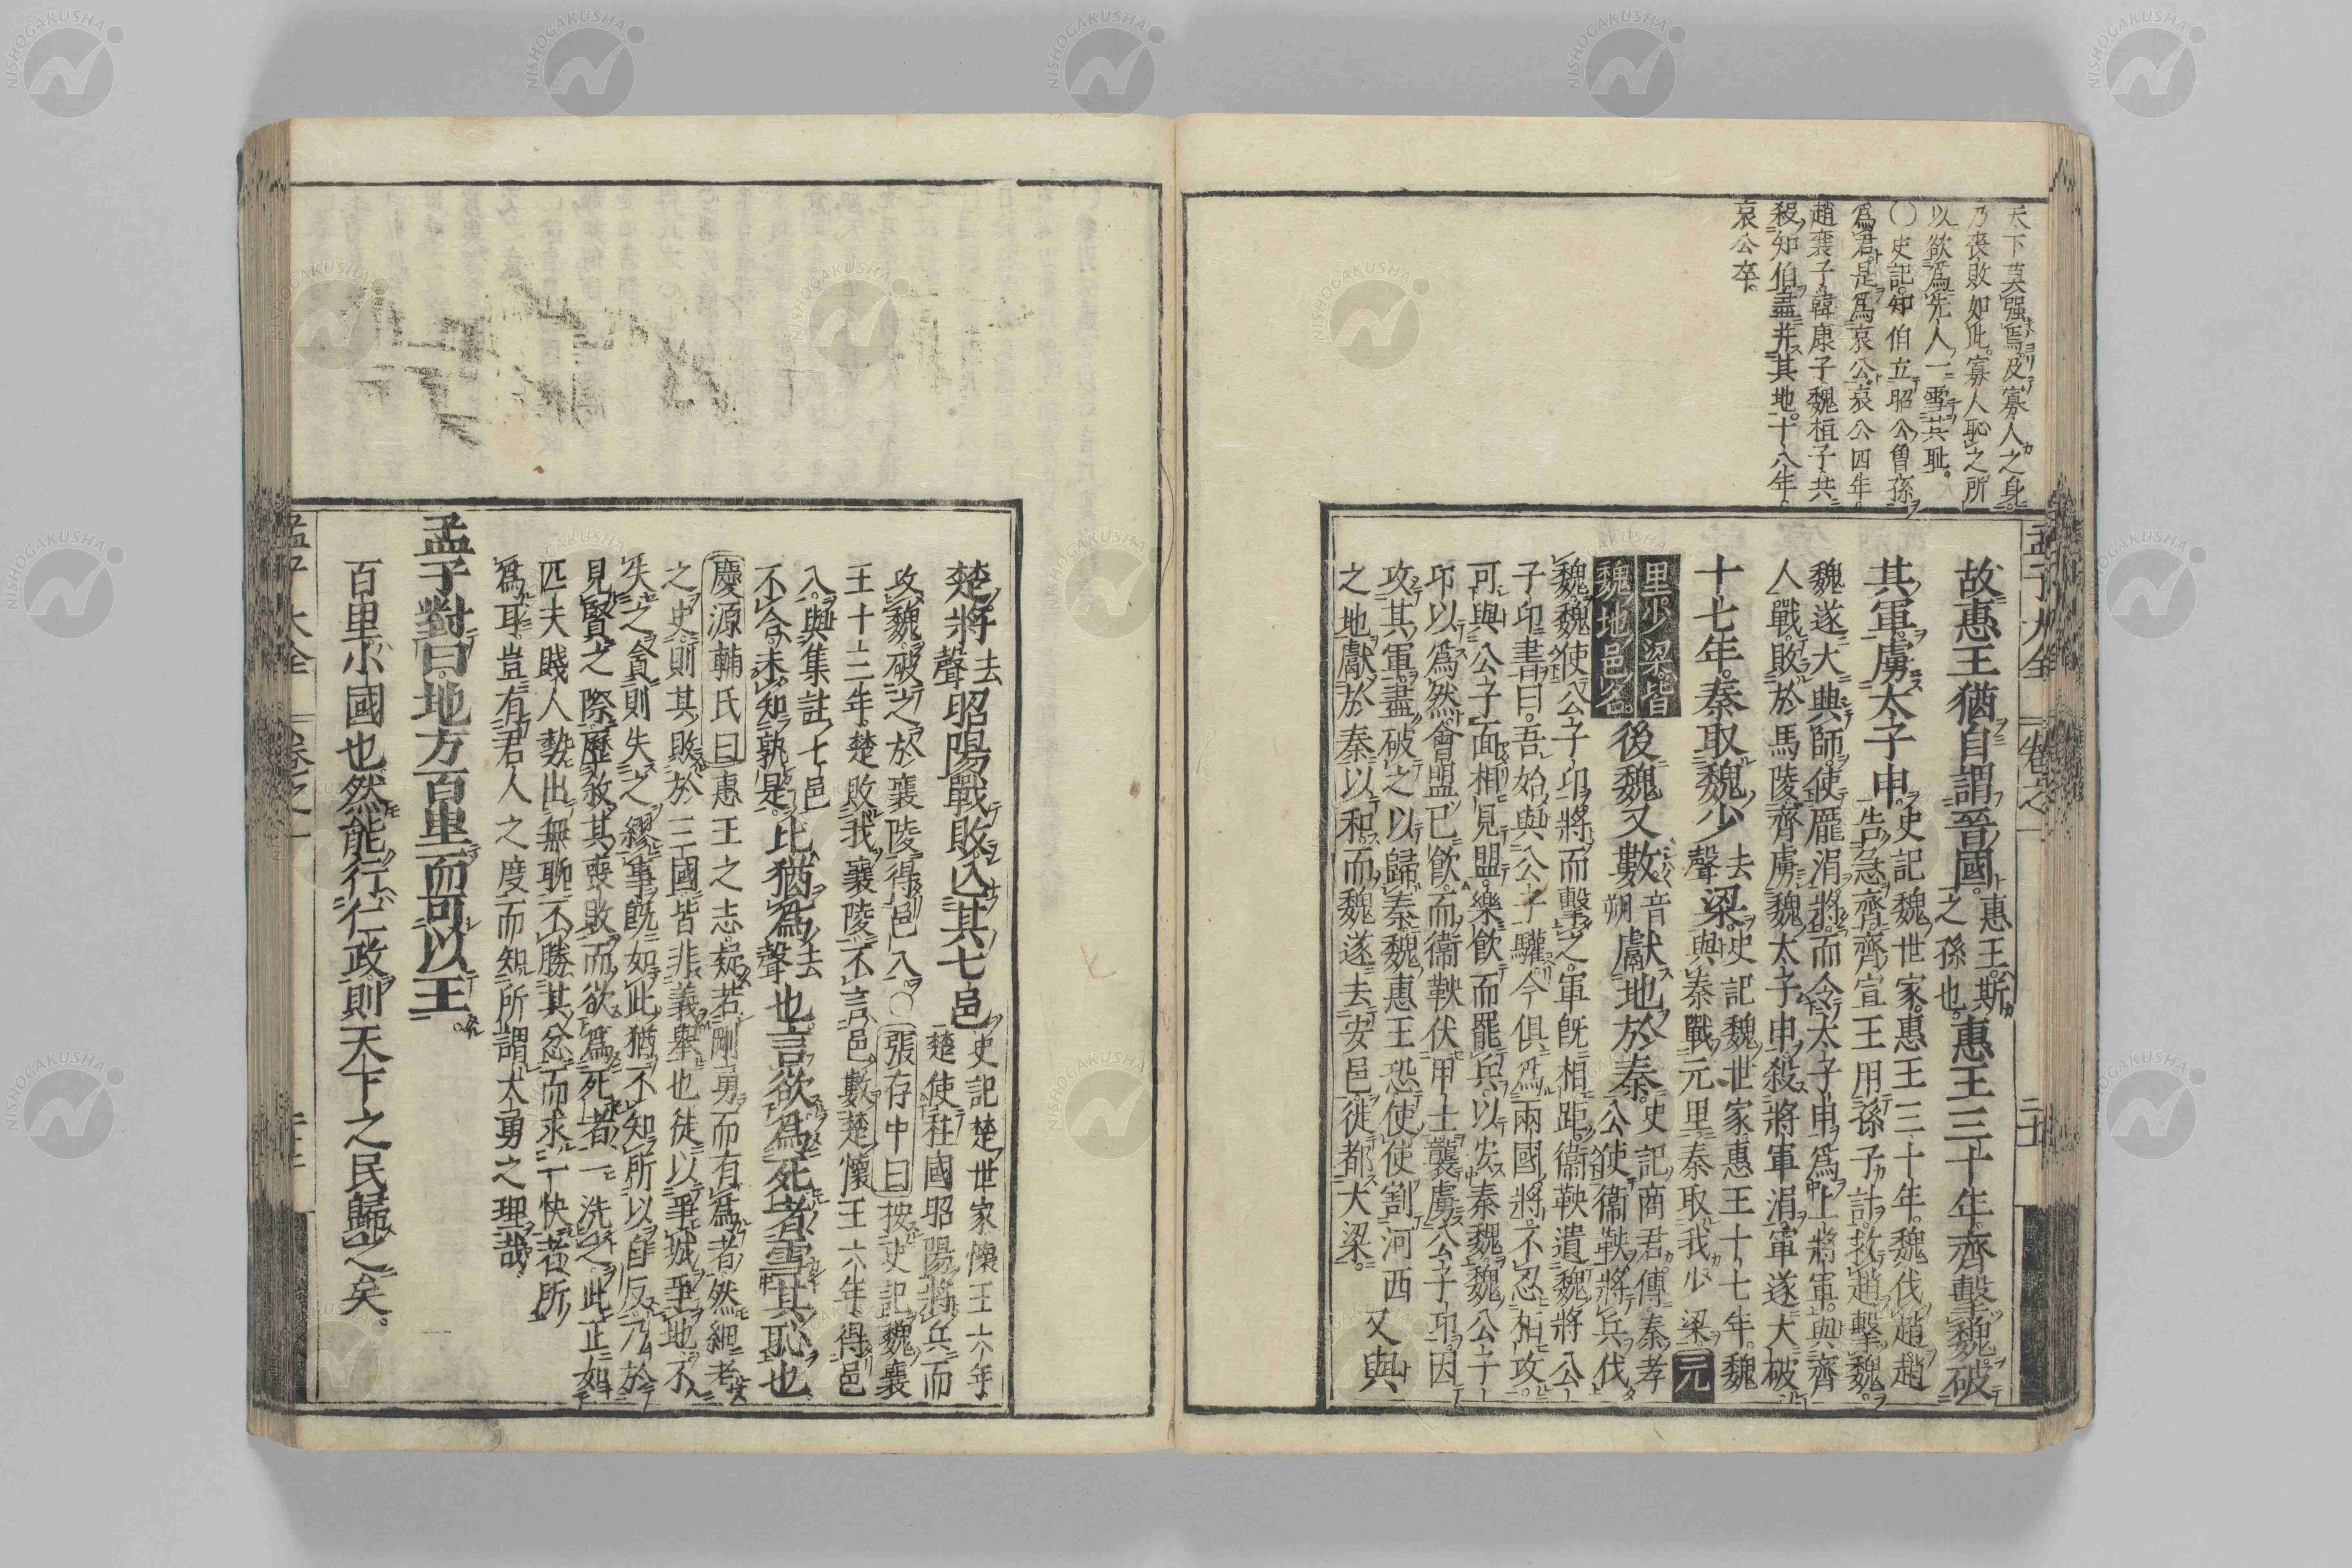 天下莫强焉及寡人之身
乃喪敗如此寡人恥之所
以欲爲先人一雪其耻
○史記知伯立昭公曾孫
爲君是爲哀公哀公四年
趙襄子韓康子魏桓子共
殺知伯盡并其地十八年
哀公卒
孟子大全 卷之一
故惠王猶自謂晉國惠王斯
之孫也惠王三十年齊擊魏破
其軍虜太子申史記魏世家惠王三十年魏伐趙趙
告急齊齊宣王用孫子計救趙擊魏
魏遂大興師使龐涓將而令太子申爲上將軍與齊
人戰敗於馬陵齊虜魏太子申殺將軍涓軍遂大破
十七年秦取魏少去聲梁史記魏世家惠王十七年魏
與秦戰元里秦取我少梁元
里少梁皆
魏地邑名後魏又數音朔獻地於秦史記商君傳秦孝
公使衞鞅將兵伐
魏魏使公子卬將而擊之軍旣相距衞鞅遺魏將公
子卬書曰吾始與公子驩今俱爲兩國將不忍相攻
可與公子面相見盟樂飮而罷兵以安秦魏魏公子
卬以爲然會盟已飮而衞鞅伏甲士襲虜公子卬因
攻其軍盡破之以歸秦魏惠王恐使使割河西
之地獻於秦以和而魏遂去安邑徙都大梁又與
楚將去聲昭陽戰敗亡其七邑史記楚世家懷王六年
楚使柱國昭陽將兵而
攻魏破之於襄陵得邑八○張存中曰按史記魏襄
王十二年楚敗我襄陵不言邑數楚懷王六年得邑
八與集註七邑
不合未知孰是比猶爲去聲也言欲爲死者雪其恥也
慶源輔氏曰惠王之志疑若剛勇而有爲者然細考
之史則其敗於三國皆非義舉也徒以爭城爭地不
失之貪則失之繆事旣如此猶不知所以自反乃於
見賢之際歷敘其喪敗而欲爲死者一洗之此正如
匹夫賤人勢出無聊不勝其忿而求一快者所
爲耳豈有君人之度而知所謂大勇之理哉
孟子對曰地方百里而可以王
百里小國也然能行仁政則天下之民歸之矣
孟子大全 卷之一
NISHOGAKUSHA